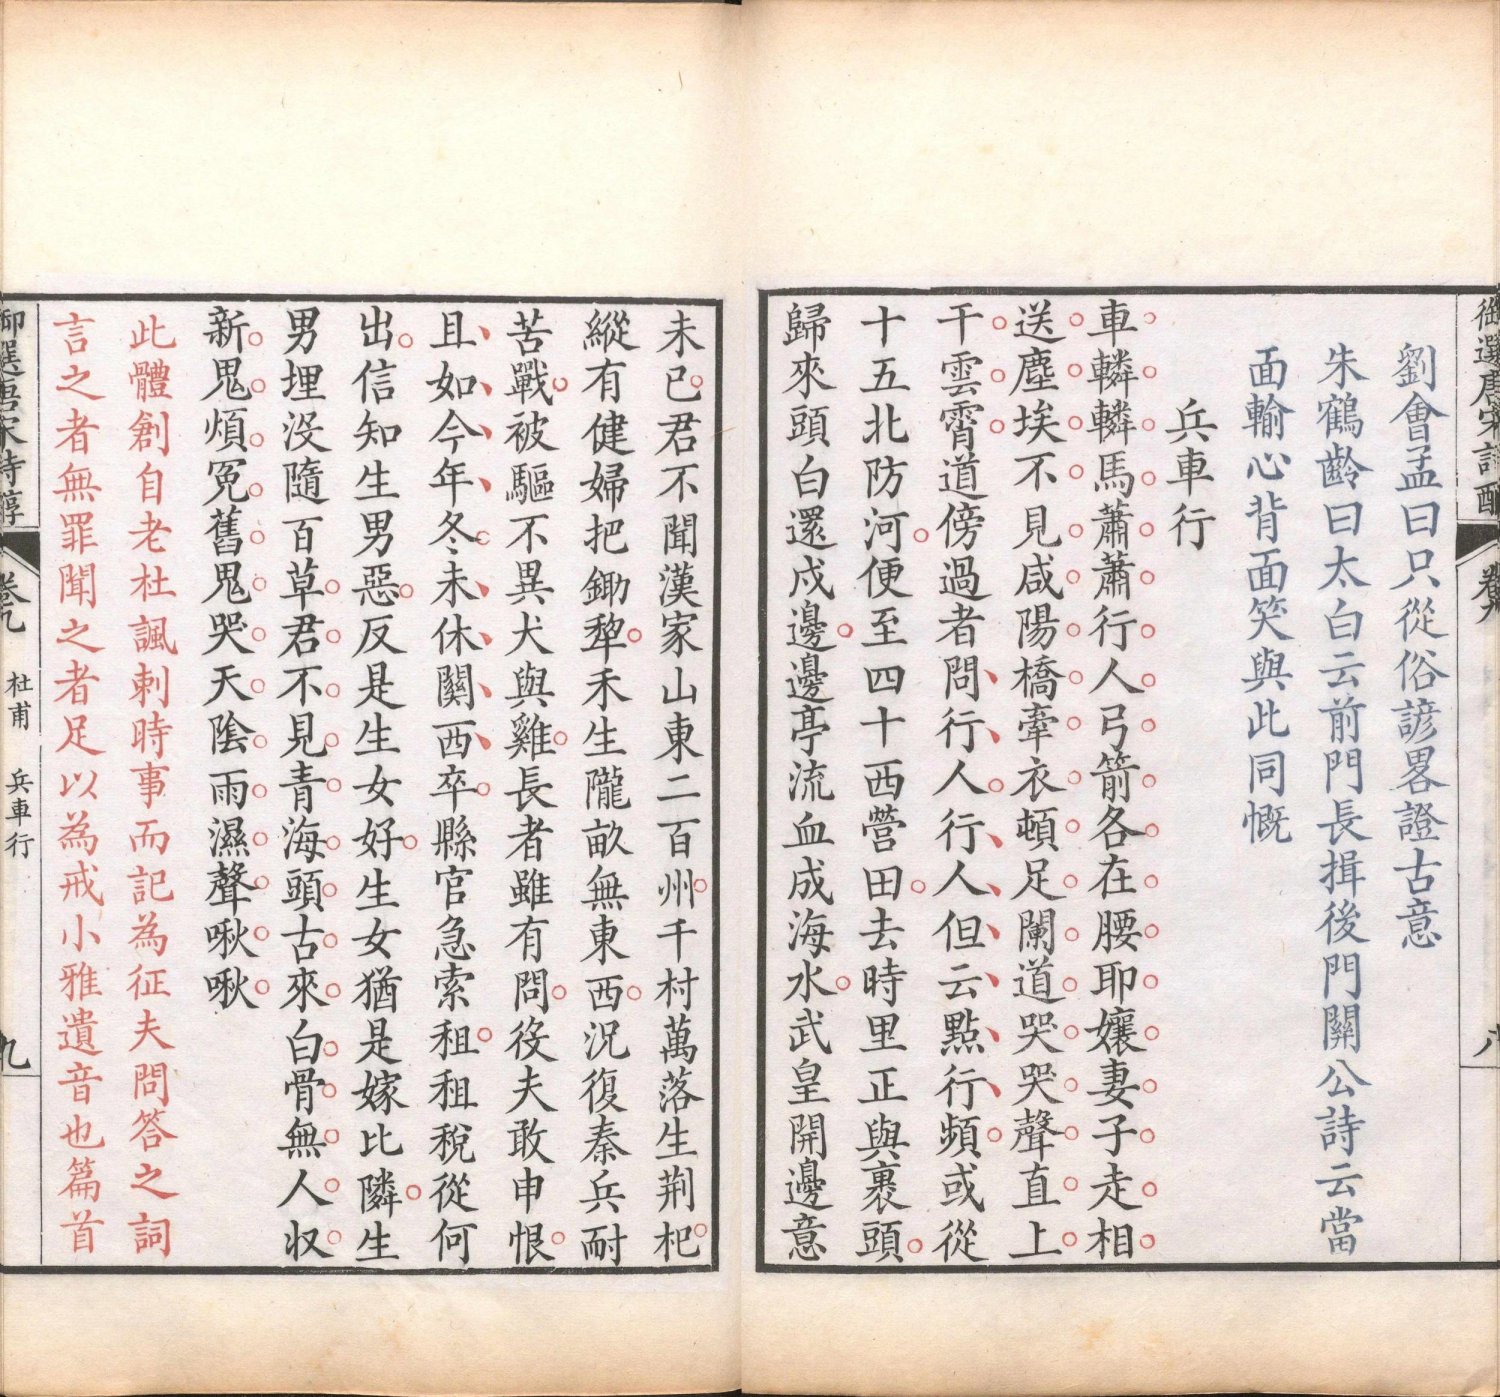 御選唐宋詩醇
卷九
八
劉會孟曰只從俗諺畧證古意
朱鶴齡曰太白云前門長揖後門關公詩云當
面輸心背面笑與此同慨
兵車行
車轔轔馬蕭蕭行人弓箭各在腰耶孃妻子走相
送塵埃不見咸陽橋牽衣頓足闌道哭哭聲直上
干雲霄道傍過者問行人行人但云點行頻或從
十五北防河便至四十西營田去時里正與裹頭
歸來頭白還戍邊邊亭流血成海水武皇開邊意
未已君不聞漢家山東二百州千村萬落生荆杞
縱有健婦把鋤犂禾生隴畝無東西況復秦兵耐
苦戰被驅不異犬與雞長者雖有問役夫敢申恨
且如今年冬未休關西卒縣官急索租租稅從何
出信知生男惡反是生女好生女猶是嫁比隣生
男埋没隨百草君不見青海頭古來白骨無人收
新鬼煩冤舊鬼哭天陰雨濕聲啾啾
此體創自老杜諷刺時事而記為征夫問答之詞
言之者無罪聞之者足以為戒小雅遺音也篇首
御選唐宋詩醇
卷九
杜甫
兵車行
九